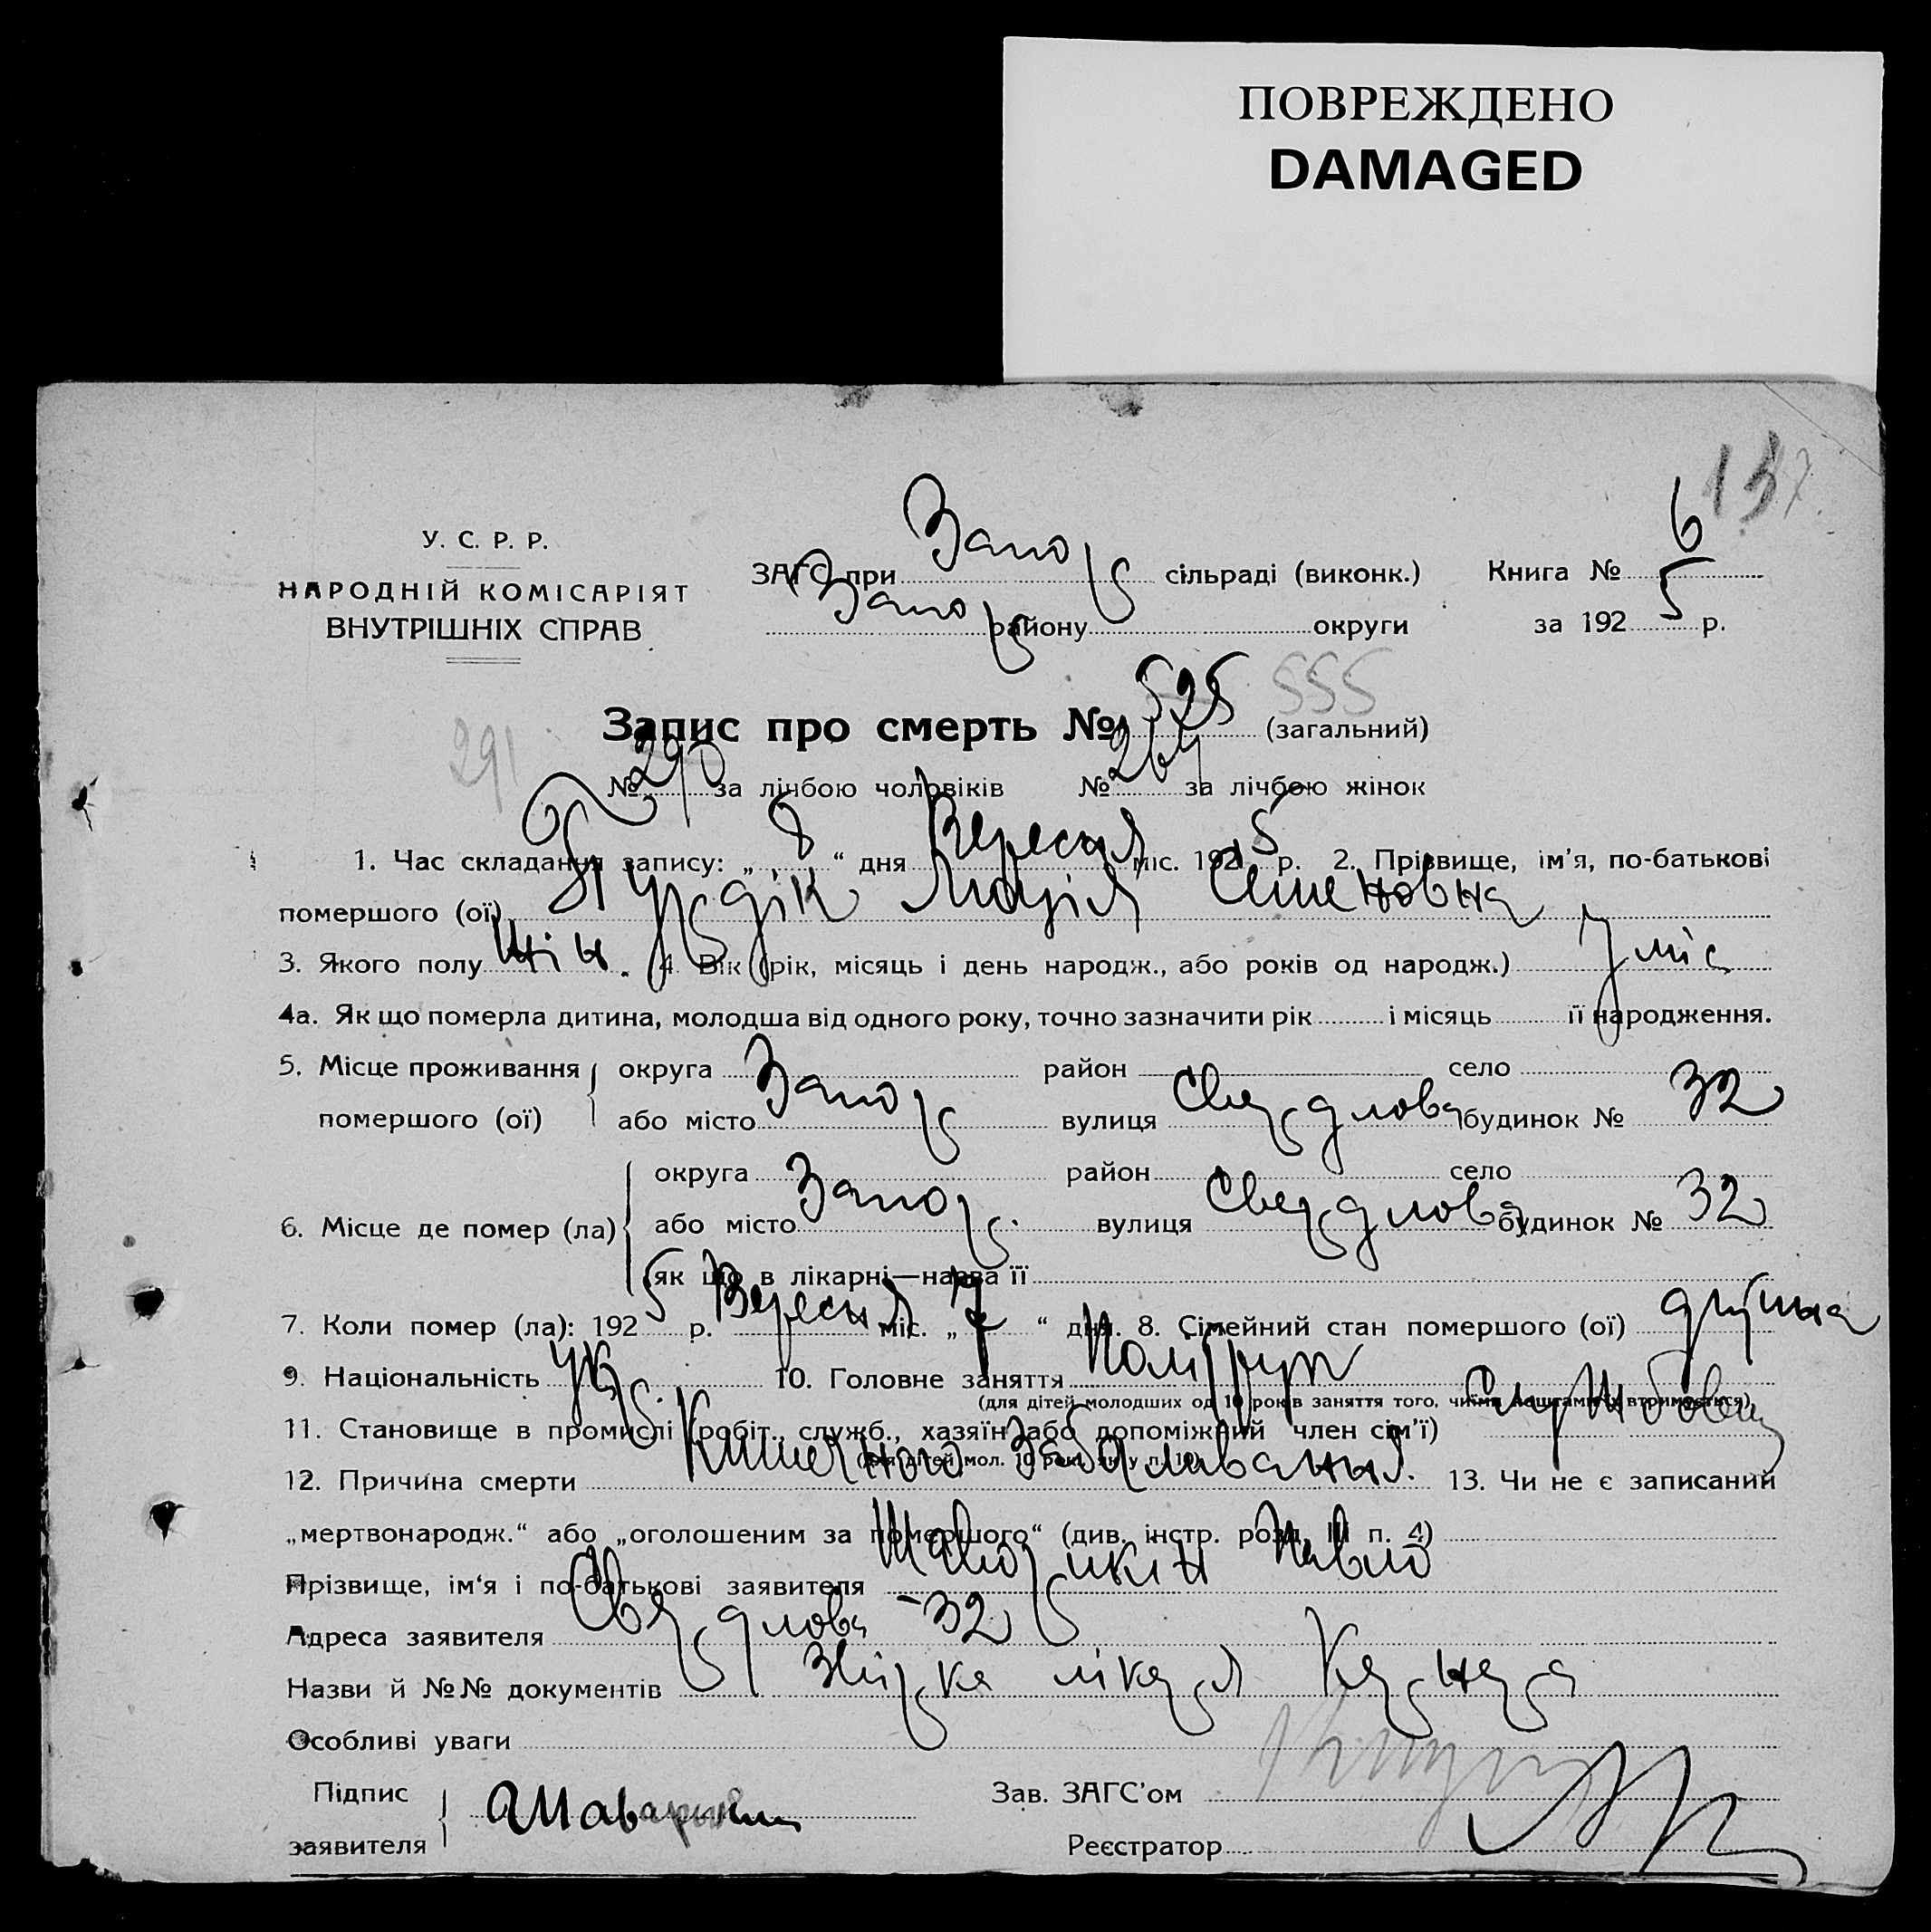 ПОВРЕЖДЕНО
DAMAGED
137
У. С. Р. Р.
НАРОДНІЙ КОМІСАРІЯТ
ВНУТРІШНІХ СПРАВ
ЗАГС при Запор сільраді (виконк.) Книга № 6
Запор району округи за 1925 р.
Запис про смерть № 525 555 (загальний)
291 № 290 за лічбою чоловіків № 264 за лічбою жінок
1. Час складання запису: „ 8 “ дня Вересня міс. 1925 р. 2. Прізвище, ім’я, по-батькові
помершого (ої) Марія Семеновна
3. Якого полу жін. 4 Вік (рік, місяць і день народж., або років од народж.) 7 міс
4а. Як що померла дитина, молодша від одного року, точно зазначити рік і місяць її народження.
5. Місце проживання помершого (ої) округа район село
або місто Запор вулиця Свердлова будинок № 32
6. Місце де помер (ла) округа район село
або місто Запор. вулиця Свердлова будинок № 32
як що в лікарні—назва її
7. Коли помер (ла): 1925 р. Вересня міс. „ 7 “ дня. 8. Сімейний стан помершого (ої)
9. Національність укр. 10. Головне заняття
(для дітей молодших од 10 років заняття того, чиїми коштами їх втримується)
11. Становище в промислі (робіт., служб., хазяїн або допоміжний член сім’ї) Службовец
(для дітей мол. 10 рок. як у п. 10)
12. Причина смерти Кишечного заболивання. 13. Чи не є записаний
„мертвонародж.“ або „оголошеним за помершого“ (див. інстр. розд. III п. 4)
Прізвище, ім‘я і по-батькові заявителя Шаворикін Павло
Адреса заявителя Свердлова - 32
Назви й №№ документів лікаря
Особливі уваги
Підпис заявителя
Зав. ЗАГС’ом
Реєстратор